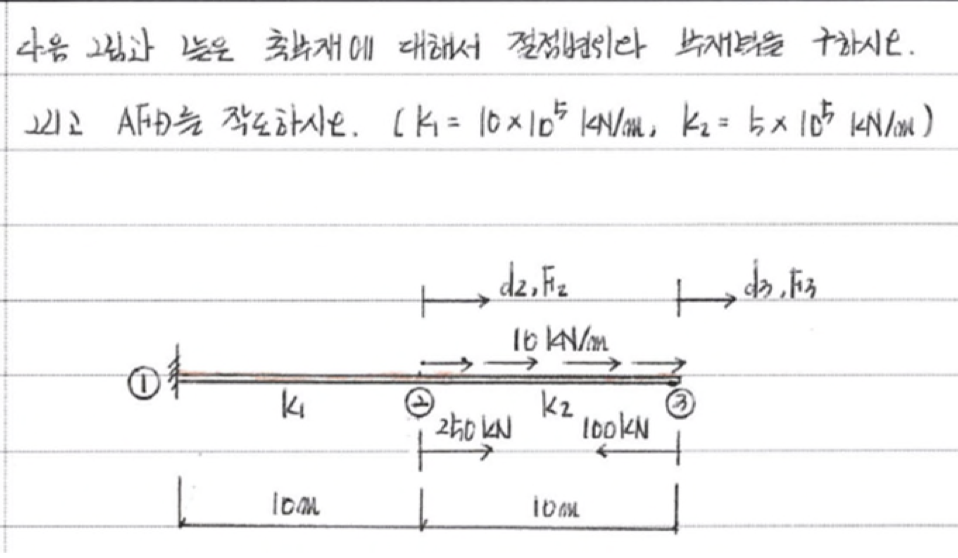 다음 그림과 같은 축부재에 대해서 절점변위와 부재력을 구하시오.
그리고 AFD를 작도하시오. (k₁ = 10×10⁵ kN/m, k₂ = 5×10⁵ kN/m)
d₂, F₂
d₃, F₃
10 kN/m
①
k₁
②
k₂
③
250 kN
100 kN
10m
10m